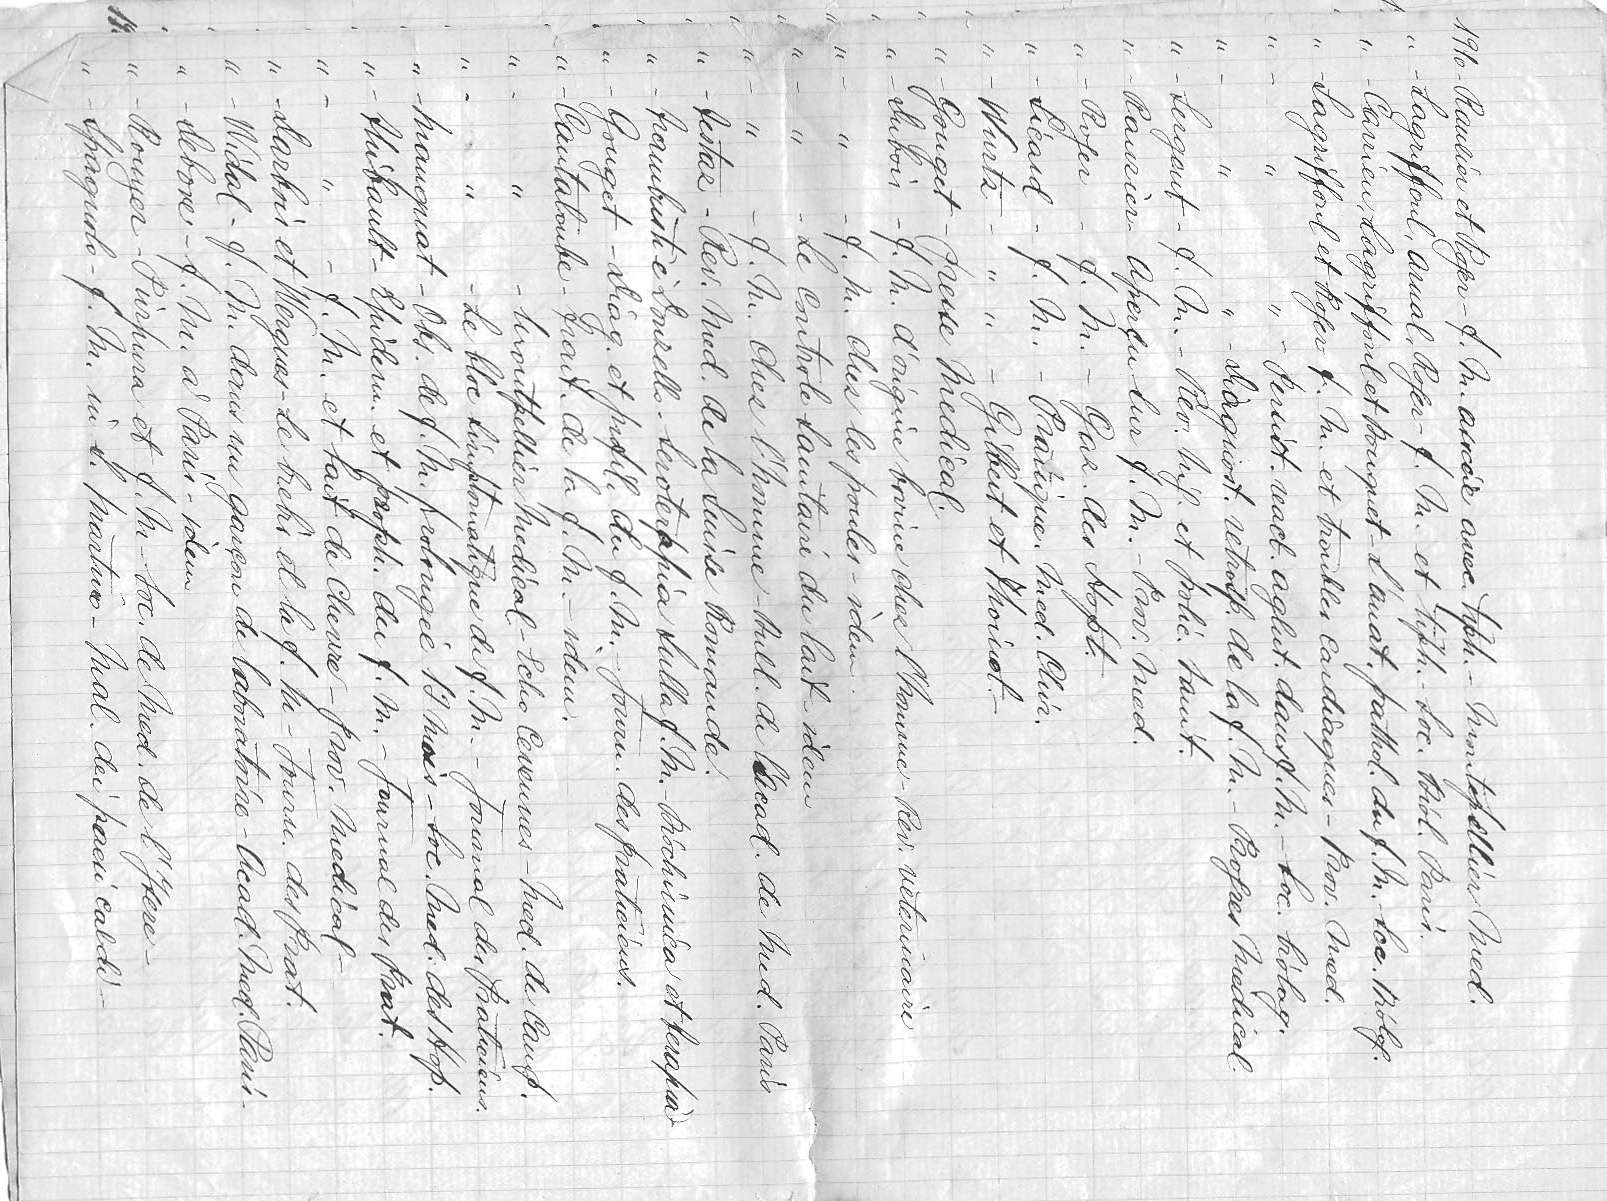 1910 - Rauzier et Roger - f. M. associé avec. typh. - Montpellier Med.
" - Lagriffoul, Arnal, Roger - f. M. et typh. - Soc. Biol. Paris.
" - Carrieu, Lagriffoul et Bouquet - L'anat. pathol. du f. M. - Soc. Biolog.
" - Lagriffoul et Roger f. M. et troubles cardiaques - Prov. Med.
" - " " - Persist. react. aglut. dans f. M. - Soc. biolog.
" - " " - Diagnost. retrosp. de la f. M. - Progres Medical
" - Sergent - f. M. - Rev. inf. et polic. sanit.
" - Rauzier - Aperçu sur f. M. - Prov. Med.
" - Roger - f. M. - Gaz. des Hopt.
" - Sicard - f. M. - Pratique. Med. Chir.
" - Wurtz - " " - Gilbert et Thoinot -
" - Gouget - Presse Medical.
" - Dubois - f. M. d'origine bovine chez l'homme - Rev. veterinaire
" - " - f. M. chez les poules - idem
" - " - Le Controle sanitaire du lait - idem
" - " - f. M. chez l'homme - Bull. de l'Acad. de Med. Paris
" - Testaz - Rev. Med. de la Suisse Romande.
" - Sorelle - Seroterapia sulla f. M. - Biochimica et terapia
" - Gouget - Diag. et profil. du f. M. - Journ. des praticiens.
" - Cantaloube - Trait. de la f. M. - idem.
" - " - Montpellier Medical - Echo Cevennes - Med. de Camp.
" - " - Le bloc simptomatique de f. M. - Journal des Praticiens.
" - Mauquat - Obs. de f. M. prolongée 17 Mois - Soc. Med. des Hop.
" - Hubault - Epidem. et proph. du f. M. - Journal des Prat.
" - " - f. M. et lait de Chevre - Prov. Medical -
" - Sarboni et Weques - Le brebis et la f. M. - Journ. des prat.
" - Widal - f. M. dans un garçon de laboratoire - Acad. Med. Paris -
" - Debove - f. M. a Paris - idem
" - Rouyer - Purpura et f. M - Soc. de Med. de l'Isere -
" - Spagnolo - f. M. in S. Martino - Mal. dei paesi caldi -
19